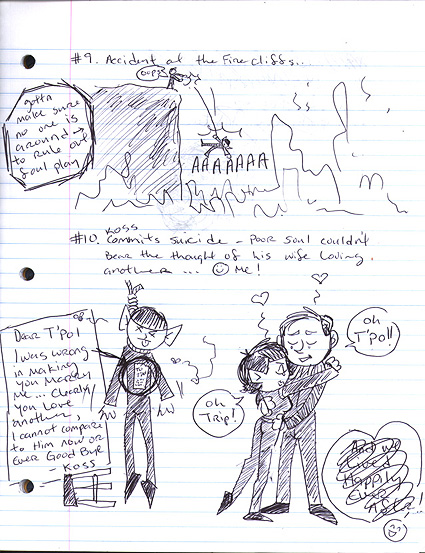 #9. Accident at the Firecliffs...
oops
gotta
make sure
no one is
around →
to rule out
foul play
AAAAAAA
#10. Koss
Commits suicide – Poor soul couldn't
bear the thought of his wife loving
another ... ☺ Me!
Dear T'Pol
I was wrong
in making
you marry
me... Clearly
you love
another,
I cannot compare
to Him now or
ever Good Bye
- Koss
oh
T'Pol!
oh
Trip!
And we
lived
Happily
Ever
After!